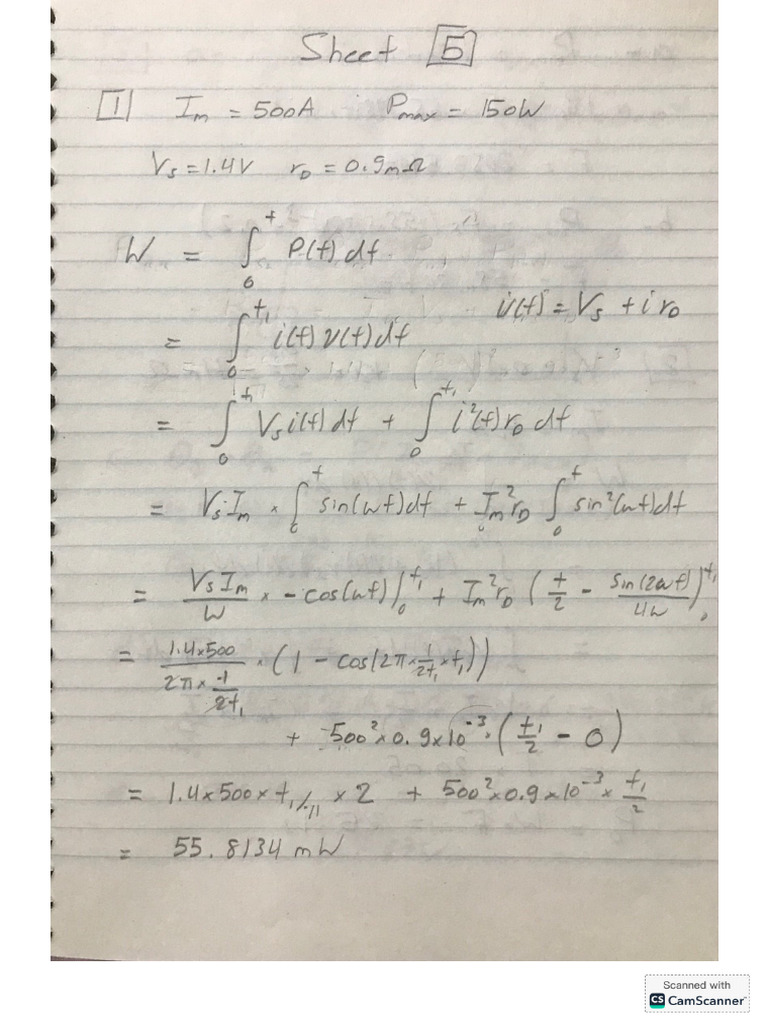 Sheet 5
1 Im = 500A Pmax = 150W
Vs = 1.4V rD = 0.9mΩ
W = ∫₀ᵗ P(t) dt
v(t) = Vs + i rD
= ∫₀^t₁ i(t) v(t) dt
= ∫₀^t₁ Vs i(t) dt + ∫₀^t₁ i²(t) rD dt
= Vs Im × ∫₀ᵗ sin(ωt) dt + Im² rD ∫₀ᵗ sin²(ωt) dt
= Vs Im / ω × -cos(ωt) |₀^t₁ + Im² rD ( t/2 - sin(2ωt)/4ω )|₀^t₁
= 1.4×500 / (2π × 1/2t₁) × (1 - cos(2π × 1/2t₁ × t₁))
+ 500² × 0.9×10⁻³ × ( t₁/2 - 0 )
= 1.4×500× t₁/π × 2 + 500²×0.9×10⁻³ × t₁/2
= 55.8134 mW
Scanned with
CS CamScanner